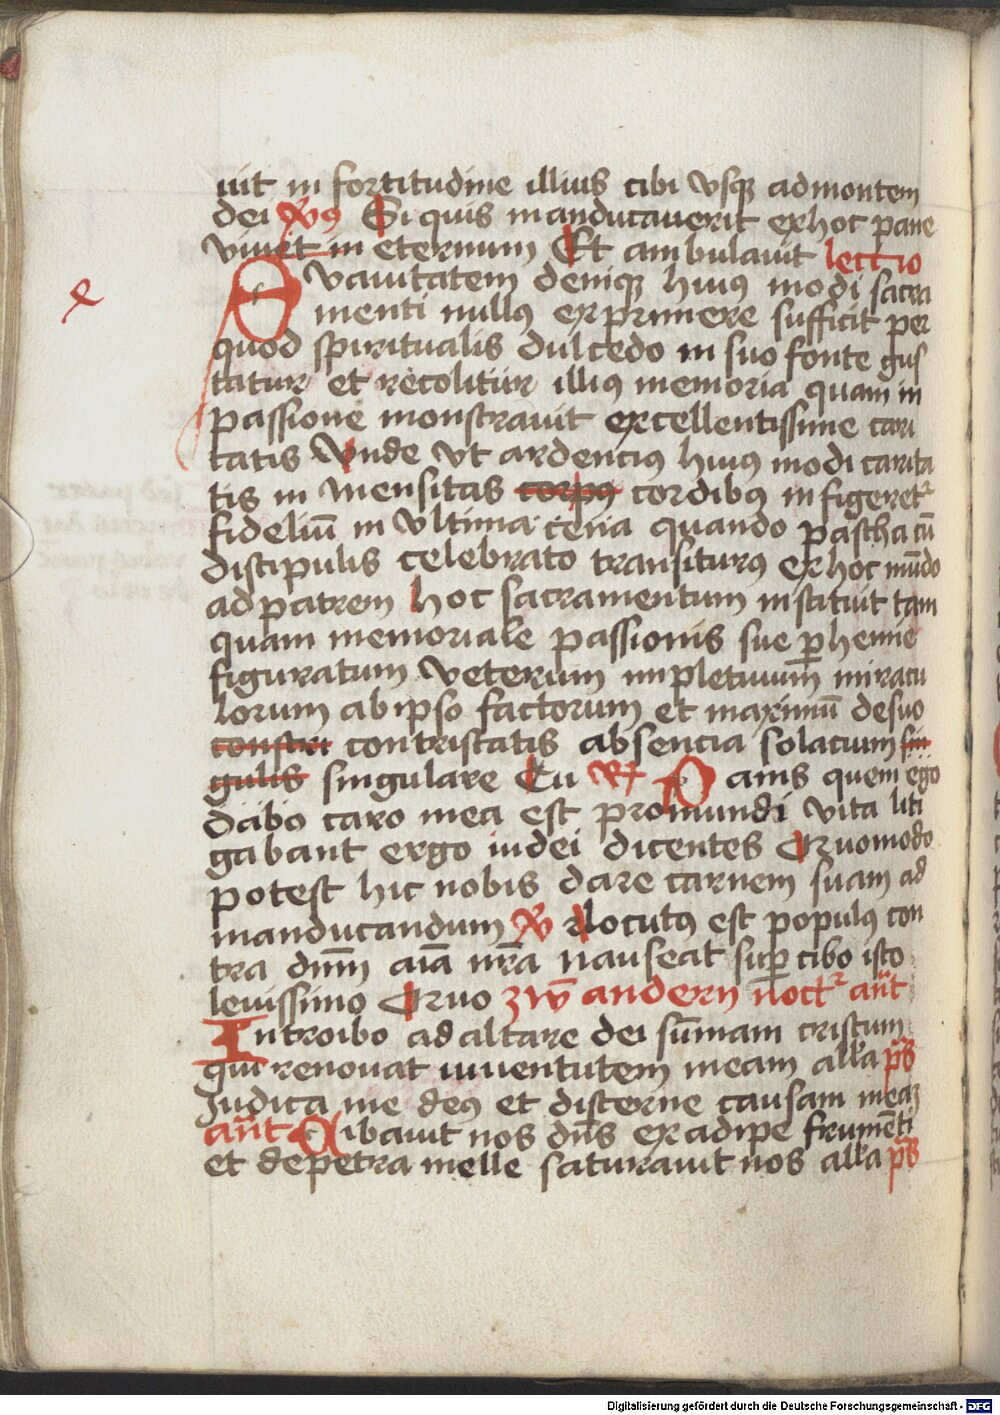 uit in fortitudine illius cibi vsq3 ad montem
dei v̄s9 Si quis manducauerit ex hoc pane
viuet in eternum Et ambulauit lectio
e
Suauitatem deniq3 hui9 modi sacra
menti null9 exprimere sufficit per
quod spiritualis dulcedo in suo fonte gus
tatur et recolitur illi9 memoria quam in
passione monstrauit excellentissime cari
tatis Vnde vt ardenci9 hui9 modi carita
tis in mensitas corp9 cordib9 in figeret2
fideliū in vltima cena quando pascha cū
discipulis celebrato transitur9 ex hoc mūdo
ad patrem hoc sacramentum instituit tam
quam memoriale passionis sue ꝑhenne
figuratum veterum impletiuum miracu
lorum ab ipso factorum et maximū de suo
constri contristatis absencia solacium sin
gulis singulare Cu R Panis quem ego
dabo caro mea est pro mundi vita liti
gabant ergo iudei dicentes Quomodo
potest hic nobis dare carnem suam ad
manducandum v̄ locut9 est popul9 con
tra dnm̄ aīa nr̄a nauseat suꝑ cibo isto
leuissimo Quo zw̄ andern noct2 ant̄
Introibo ad altare dei sūmam cristum
qui renouat iuuentutem meam all'a ps̄
Judica me de9 et discerne causam mea3
ant̄ Cibauit nos dn̄s ex adipe frumēti
et de petra melle saturauit nos all'a ps̄
Digitalisierung gefördert durch die Deutsche Forschungsgemeinschaft - DFG